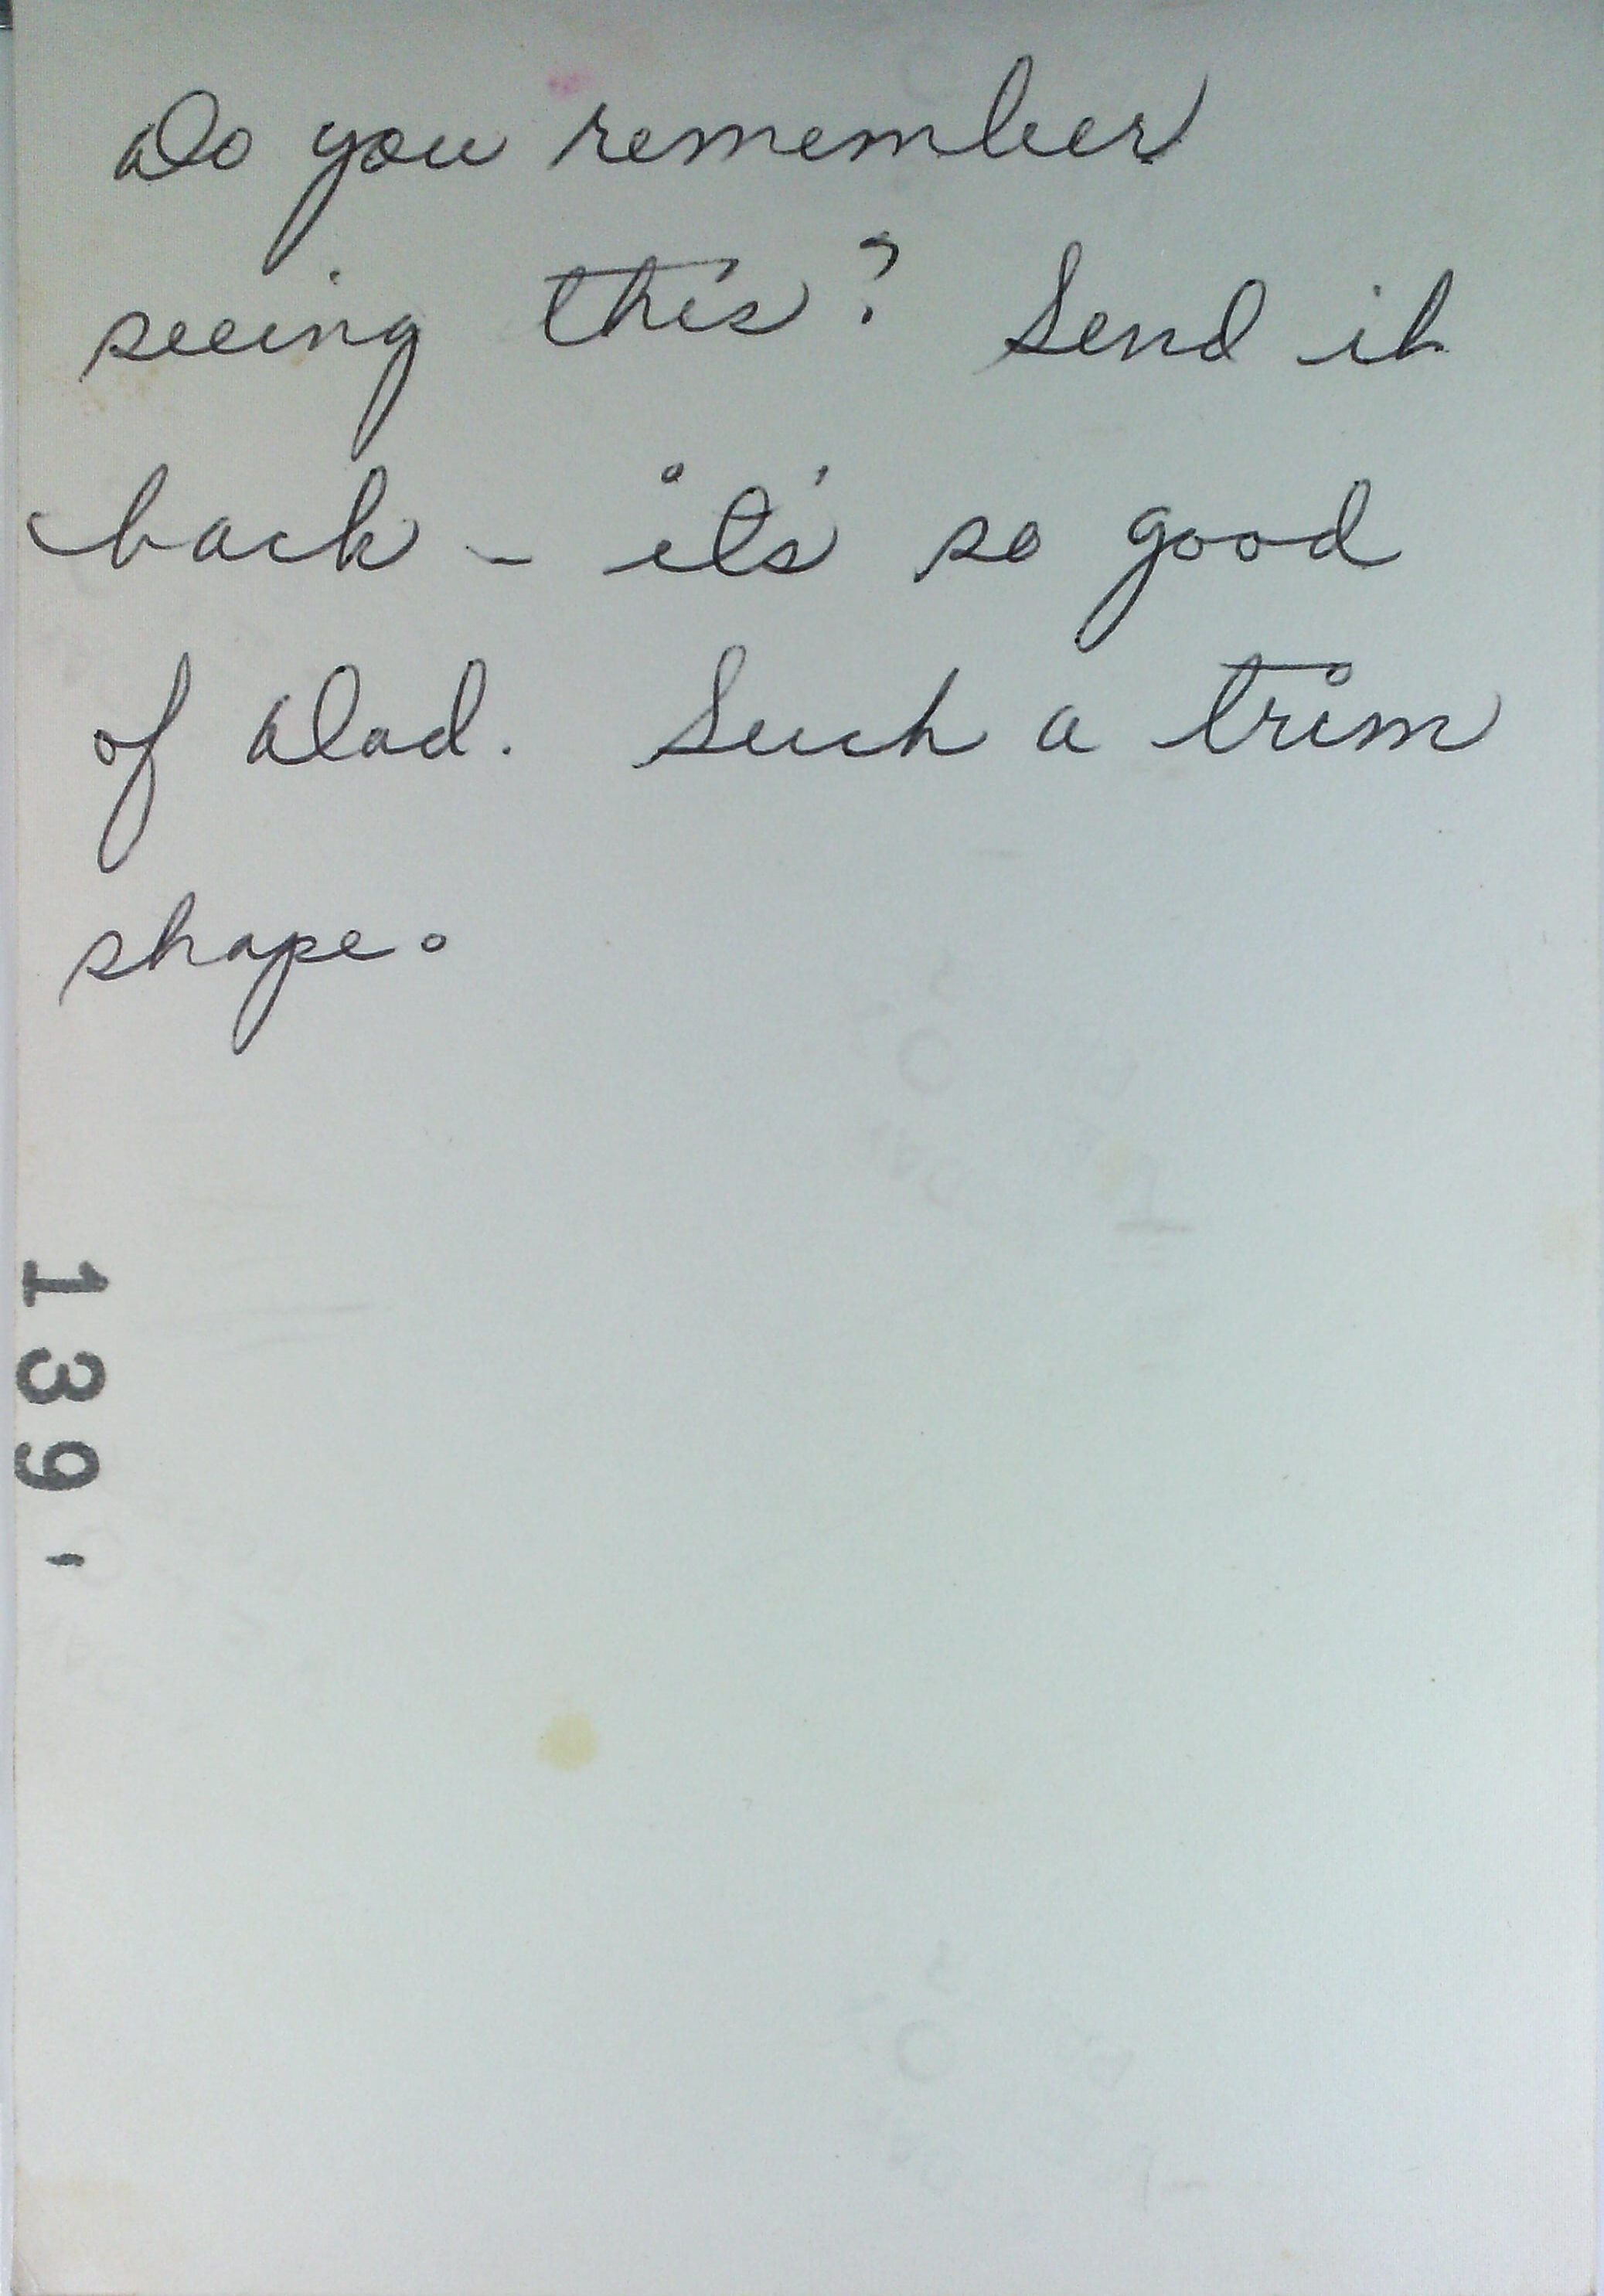 Do you remember
seeing this? Send it
back - it's so good
of Dad. Such a trim
shape.
139